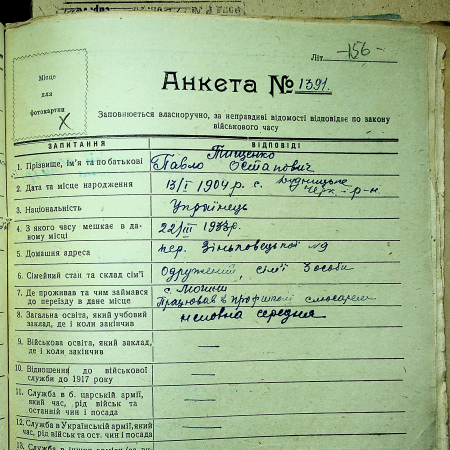 Літ. -156-
Місце
для
фотокартки
Анкета № 1391.
Заповнюється власноручно, за неправдиві відомості відповідає по закону
військового часу
ЗАПИТАННЯ ВІДПОВІДІ
1. Прізвище, ім'я та побатькові Тищенко
Павло Остапович
2. Дата та місце народження 13/I 1904 р. с.
3. Національность Українець
4. З якого часу мешкає в да-
ному місці 22/III 1933р.
5. Домашня адреса пер. Зіньковецької №9
6. Сімейний стан та склад сім'ї Одружений, сім'ї 3 особи
7. Де проживав та чим займався
до переїзду в дане місце Працював слюсарем
8. Загальна освіта, який учбовий
заклад, де і коли закінчив неповна середня
9. Військова освіта, який заклад,
де і коли закінчив —
10. Відношення до військової
служби до 1917 року —
11. Служба в б. царській армії,
який час, рід військ та
останній чин і посада —
12. Служба в Українській армії, який
час, рід військ та ост. чин і посада —